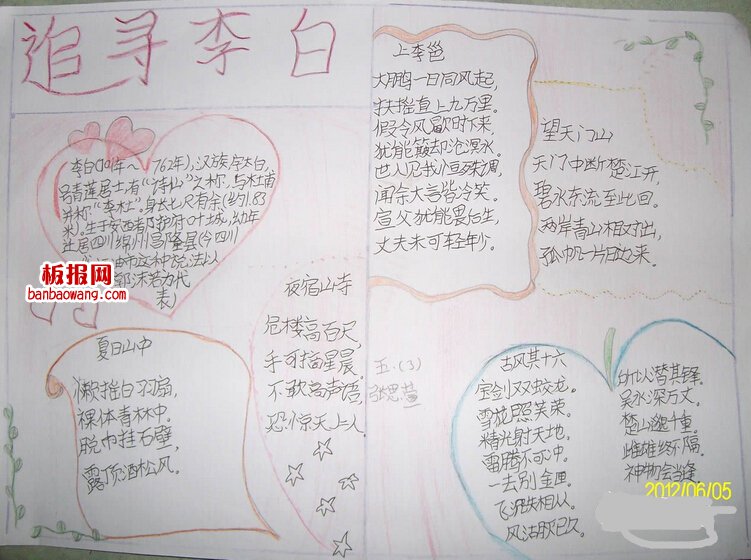 追寻李白
李白(701年~762年),汉族,字太白,
号青莲居士,有“诗仙”之称,与杜甫
并称“李杜”。身长七尺有余(约1.83
米)。生于安西都护府叶城,幼年
迁居四川绵州昌隆县(今四川
江油市这种说法以
郭沫若为代
表)
板报网
banbaowang.com
夏日山中
懒摇白羽扇,
裸体青林中。
脱巾挂石壁,
露顶洒松风。
夜宿山寺
危楼高百尺,
手可摘星晨。
不敢高声语,
恐惊天上人
上李邕
大鹏一日同风起,
扶摇直上九万里。
假令风歇时下来,
犹能簸却沧溟水。
世人见我恒殊调,
闻余大言皆冷笑。
宣父犹能畏后生,
丈夫未可轻年少。
望天门山
天门中断楚江开,
碧水东流至此回。
两岸青山相对出,
孤帆一片日边来。
五.(3)
张思
古风其十六
宝剑双蛟龙。
雪花照芙荣。
精光射天地。
雷腾不可冲。
一去别金匣。
飞沉失相从。
风沽殁已久。
所以潜其锋。
吴水深万丈。
楚山邈千重。
雌雄终不隔。
神物会当逢
2012/06/05